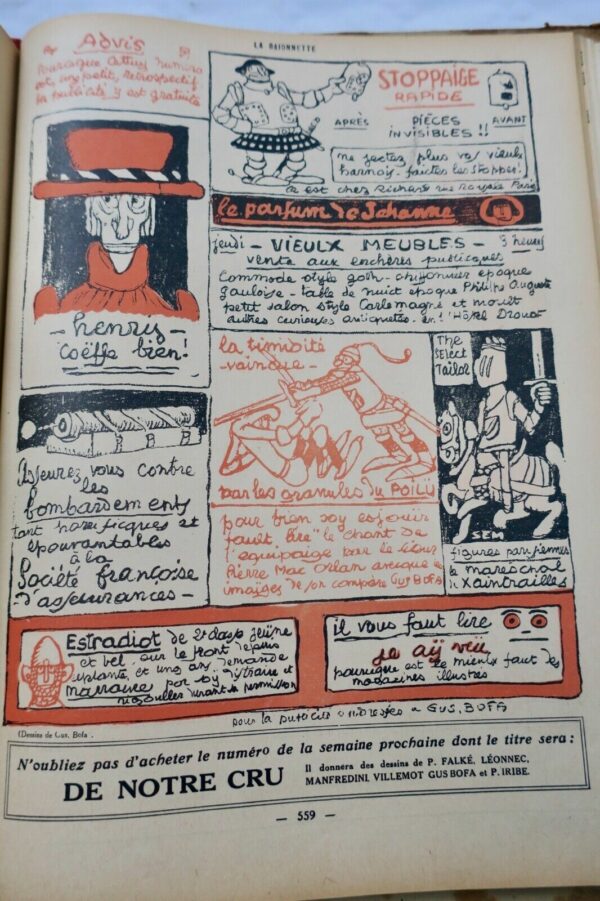 LA BAIONNETTE
Advis
numéro
est, ung petit, retrospectif
la publicité y est gratuite
STOPPAIGE
RAPIDE
APRÈS PIÈCES AVANT
INVISIBLES !!
ne jectez plus vos vieulx
harnoys - faictes les stopper !
ce est chez Richard rue Royale Paris
le parfum de Jehanne
jeudi - VIEULX MEUBLES - 3 heures
vente aux enchères publicques
Commode style goth - chiffonnier epoque
gauloise - table de nuict epoque Philippe Auguste
petit salon style Carlemagne et moult
autres curieuses antiquetés - en l'Hôtel Drouot
- henry -
coëffe bien !
la timidité
vaincue -
par les granules du POILU
The
Select
Tailor
SEM
figures parisiennes
le mareschal
de Xaintrailles
Asseurez vous contre
les
bombardements
tant horrificques et
épouvantables
à la
Société françoise
d'asseurances -
pour bien soy esjouir
fault lire "le chant de
l'equipaige" par le
Pierre Mac Orlan avecque
imaiges de son compère Gus BOFA
Estradiot de 2e classe jeüne
et bel, sur le front depuis
et ung ans, demande
marraine pour soy distraire et
durant la permission
il vous faut lire
je aÿ veü
pourquoy est le mieulx faut des
magazines illustrés
pour la publicité GUS. BOFA
(Dessins de Gus. Bofa.
N'oubliez pas d'acheter le numéro de la semaine prochaine dont le titre sera :
DE NOTRE CRU
Il donnera des dessins de P. FALKÉ, LÉONNEC,
MANFREDINI, VILLEMOT, GUS BOFA et P. IRIBE.
— 559 —